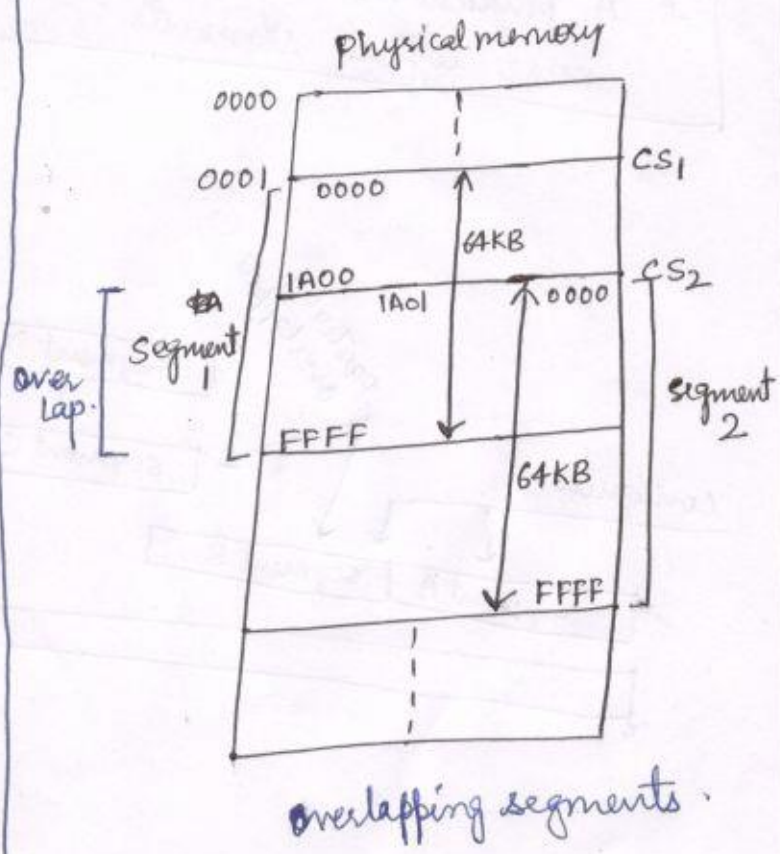 Physical memory
0000
0001 0000 CS1
64KB
1A00 CS2
1A01 0000
Segment
1
over
Lap.
segment
2
FFFF
64KB
FFFF
overlapping segments.